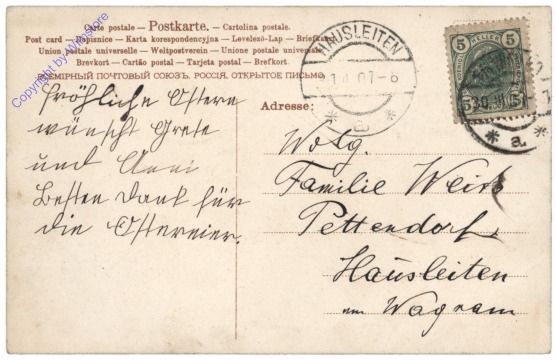 Carte postale – Postkarte. – Cartolina postale.
Post card – Dopisnice – Karta korespondencyjna – Levelező-Lap – Briefkaart
Union postale universelle – Weltpostverein – Unione postale universale
Brevkort – Cartão postal – Tarjeta postal – Brefkort.
ВСЕМІРНЫЙ ПОЧТОВЫЙ СОЮЗЪ. РОССІЯ. ОТКРЫТОЕ ПИСЬМО
Copyright by Wienstore
HAUSLEITEN
1.4.07-8
* a *
5 HELLER 5
30.III.
* a *
Fröhliche Ostern
wünscht Grete
und Anni
Besten Dank für
die Ostereier.
Adresse:
Wolg.
Familie
Pettendorf
Hausleiten
am Wagram